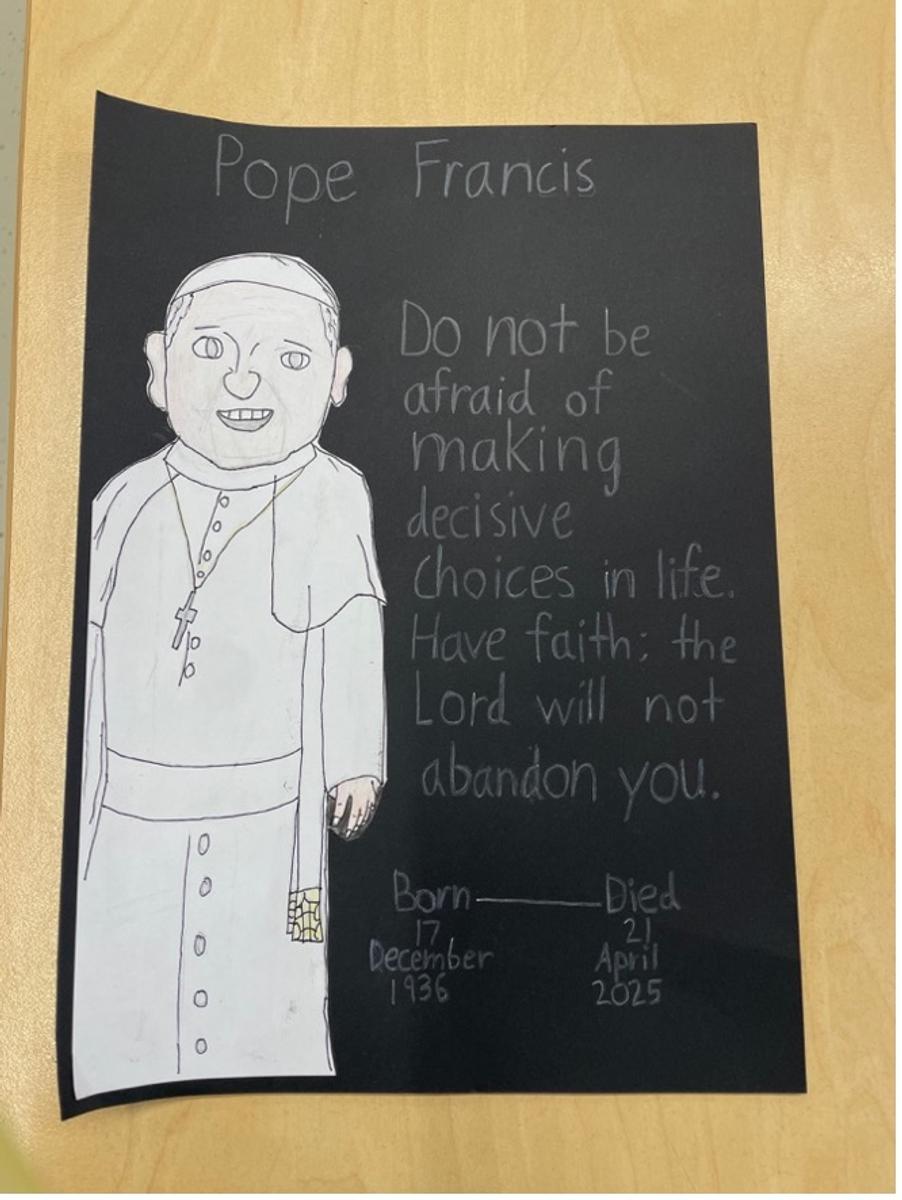 Pope Francis
Do not be
afraid of
making
decisive
choices in life.
Have faith; the
Lord will not
abandon you.
Born Died
17 21
December April
1936 2025